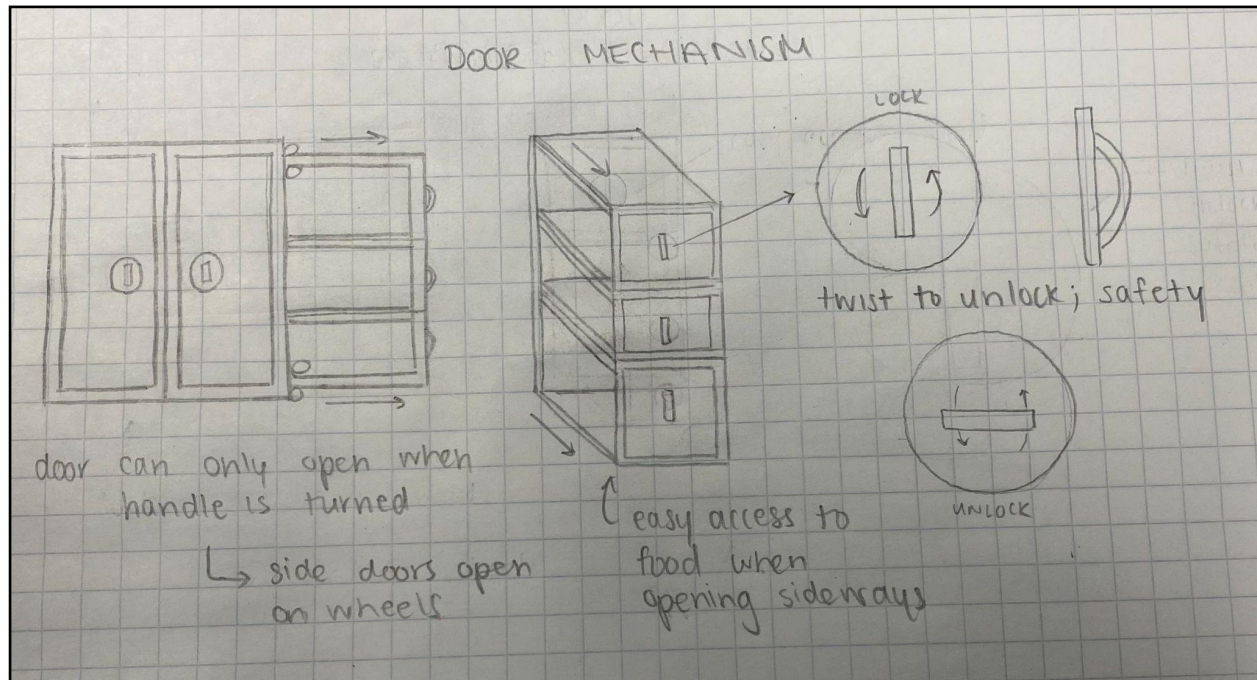 DOOR MECHANISM
LOCK
twist to unlock; safety
UNLOCK
door can only open when
handle is turned
↳ side doors open
on wheels
easy access to
food when
opening sideways